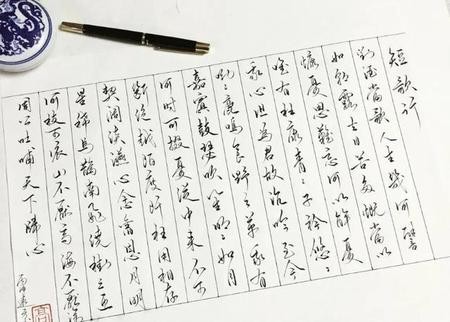 短歌行
對酒當歌人生幾何譬
如朝露去日苦多慨當以
慷憂思難忘何以解憂
唯有杜康青々子衿悠々
我心但為君故沉吟至今
呦々鹿鳴食野之苹我有
嘉賓鼓瑟吹笙明々如月
何時可掇憂從中來不可
斷絕越陌度阡枉用相存
契闊談讌心念舊恩月明
星稀烏鵲南飛繞樹三匝
何枝可依山不厭高海不厭深
周公吐哺天下歸心
丙申